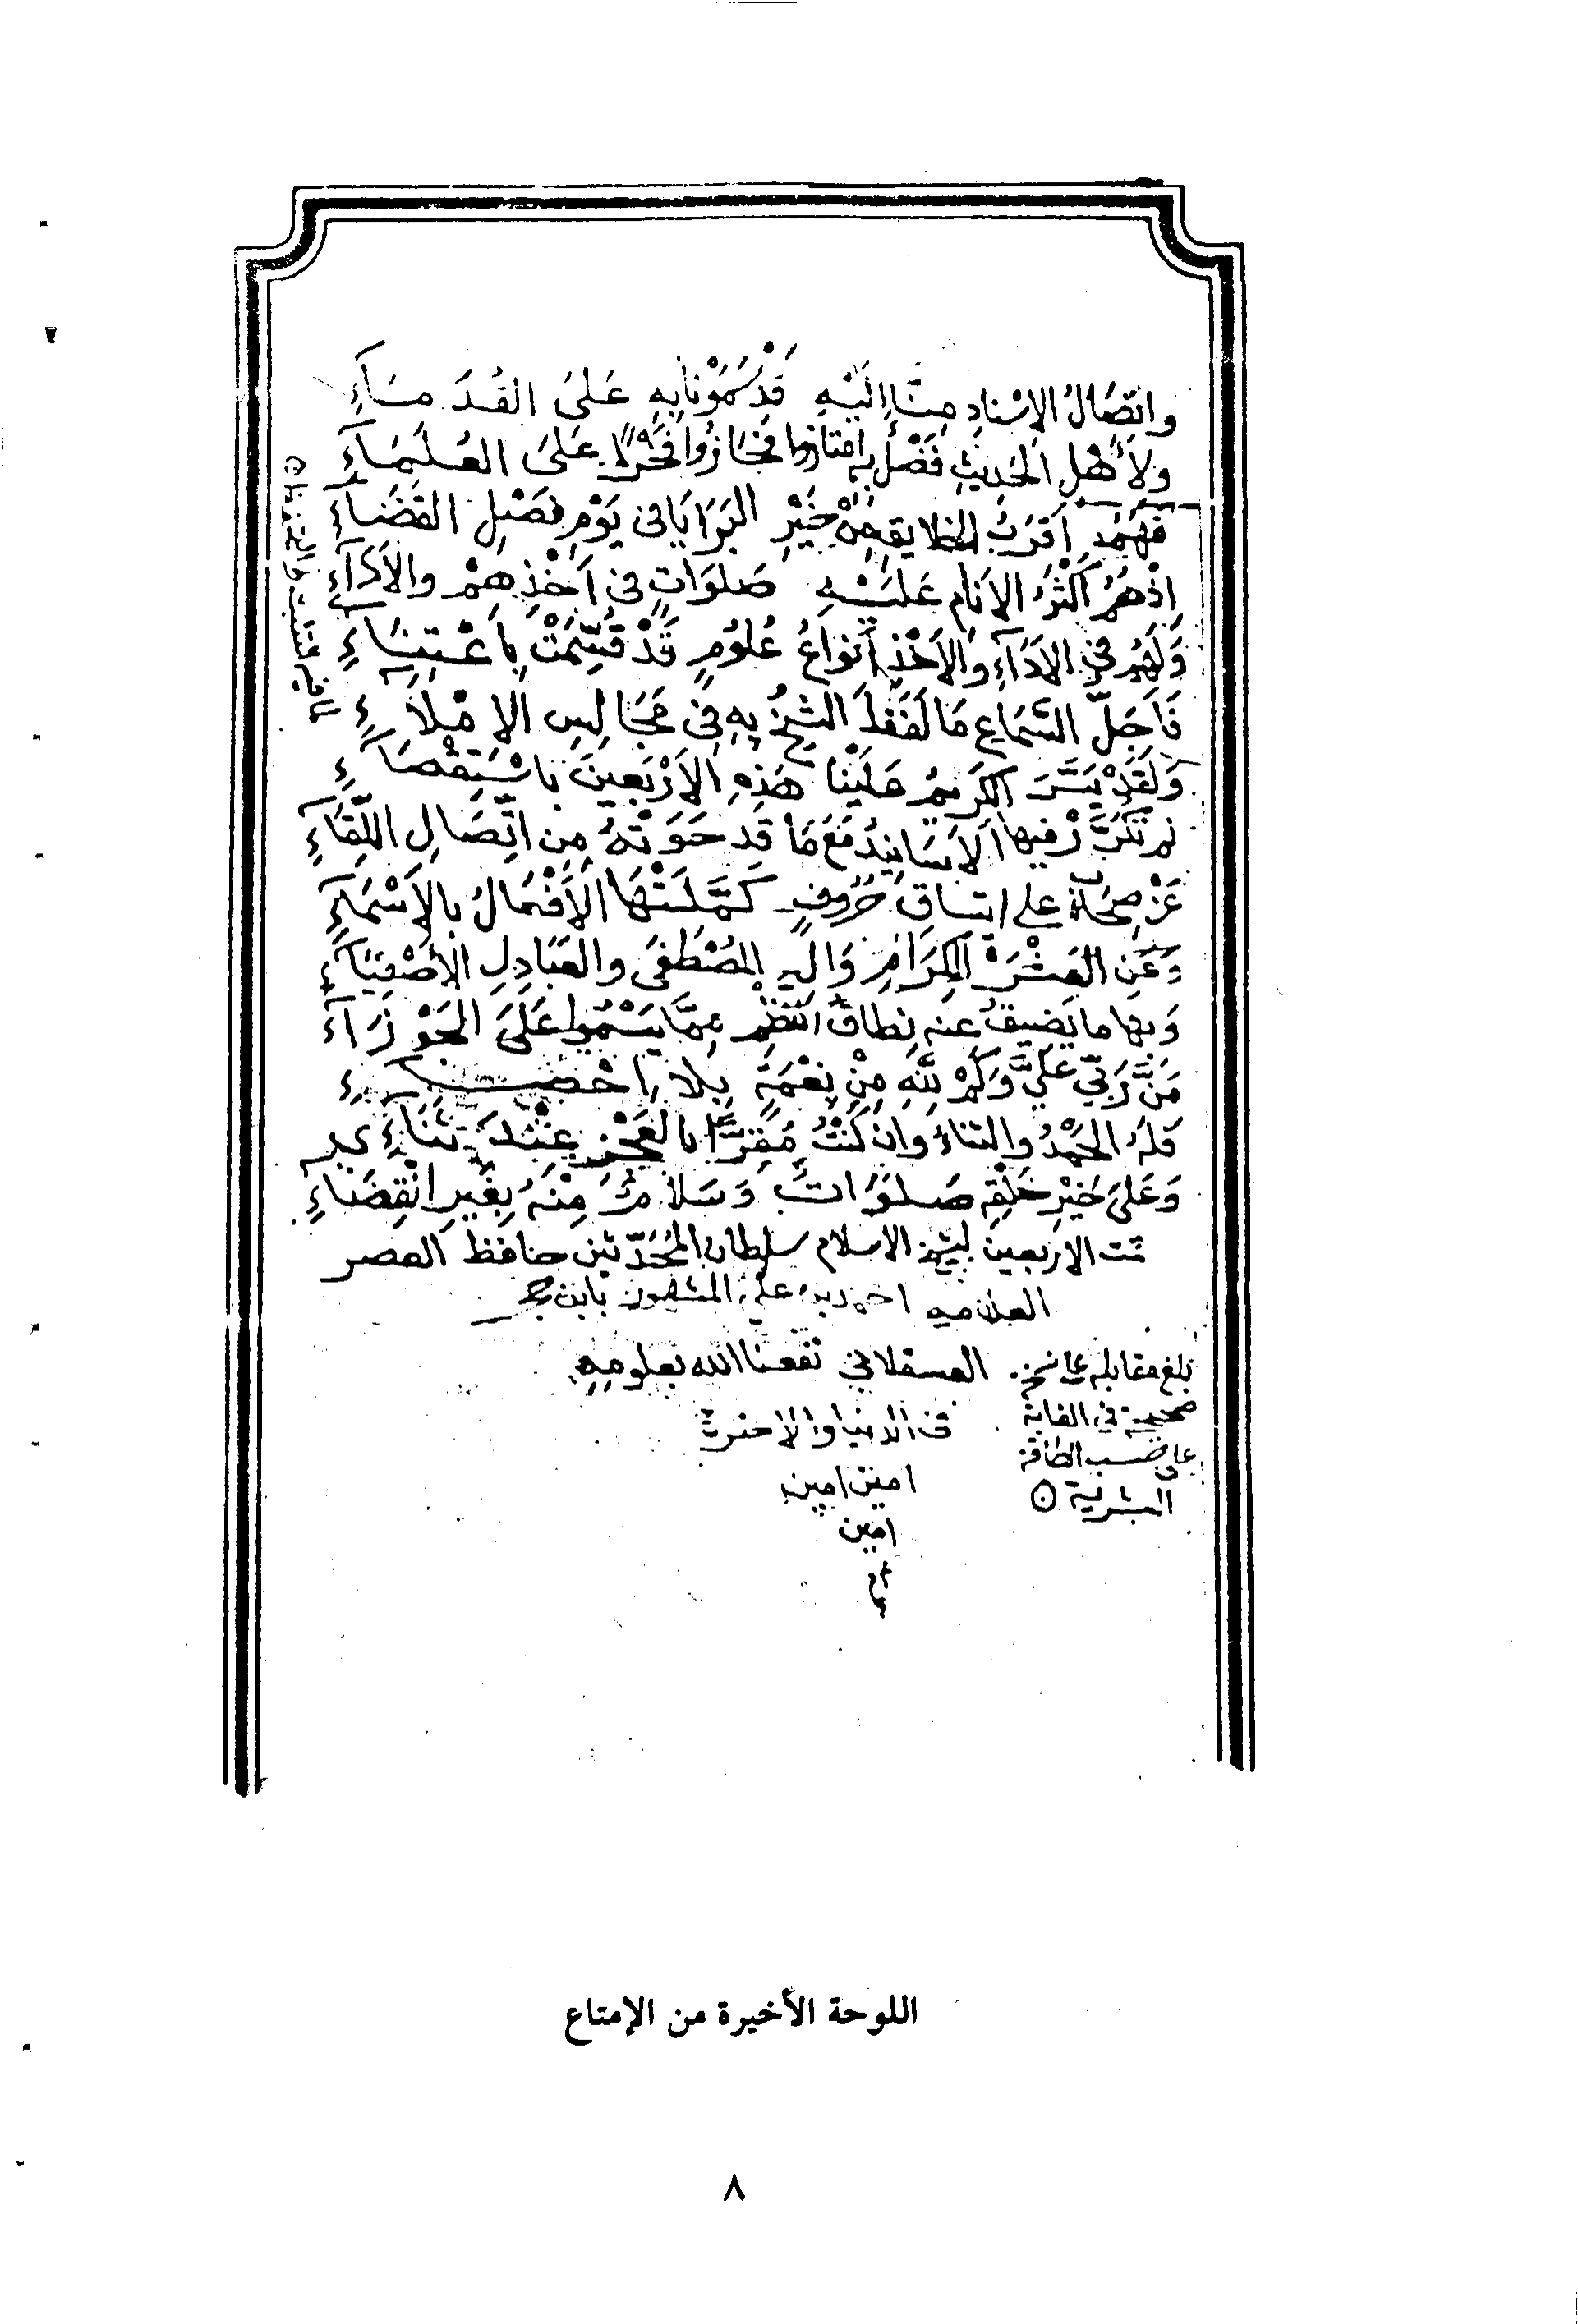 واتصَالُ الاِسْنادِ مِنَّا اِلَيْهِ قَدْ سَمَوْنَا بِهِ عَلىَ القُدَمَآءِ
ولاَهْلِ الحَديثِ فَضْلٌ به امتازوا فحَازُوا فَخْرًا عَلىَ العُلَمَآءِ
فَهُمُ اَقرَبُ الخلايقِ مِنْ خَيْرِ البَرَايَا فى يَوْمِ فَصْلِ القَضَآءِ
اِذْ هُمُ اَكْثَرُ الاَنامِ عَلَيْهِ صَلوَاتٍ فى اَخْذِهِمْ والاَدَآءِ
وَلَهُم فى الاَدَآءِ وَالاَخْذِ اَنواعُ عُلُومٍ قَدْ قُسِّمَتْ بِاعْتِنَآءِ
فَاَجَلّ السَّمَاعِ مَا لَفَظَ الشيْخُ بِهِ فى مَجَالِسِ الاِمْلاءِ
وَلَقَدْ يَسَّرَ الكَرِيمُ عَلَيْنا هَذِهِ الاَرْبَعِينَ باسْتِقْصَاءِ
لم تكَرَّرْ فيها الاَسَانِيدُ مَعَ مَا قَد حَوَتْهُ مِن اتِّصَالِ اللِّقَآءِ
عَنْ صِحَابٍ على اتساقِ حُرُوفٍ كَمَّلَتْهَا الاَفعَالُ بالاَسْمَآءِ
وَعَنِ العَشْرَةْ الكِرَامِ وَالِ المُصْطَفىَ والعَبَادِلِ الاَصْفِيَآءِ
وَبها ما يَضِيقُ عنه نِطاقُ النَّظْمِ مِمَّا يَسْمُوا عَلىَ الجَوْزَآءِ
مَنَّ رَبّي عَلَيَّ وَكَمْ لِلّهِ مِنْ نِعْمَةٍ بِلا اِحْصَاءِ
فَلَهُ الحَمْدُ والثناءُ وان كُنْتُ مُقِرًّا بالعَجْزِ عِنْدَ ثَنَآءِى
وَعَلىَ خَيْرِ خَلْقِهِ صَلَوَاتٌ وَسَلامٌ مِنْهُ بِغَيرِ انْقِضَاءِ
تمت الاربعين لشيخ الاسلام سلطان المُحَدّثين حافظ العصر
العلامه احمد بن على المشهور بابن حجر
العسقلاني نفعنا الله بعلومه
فى الدنيا والاخرة
امين امين
امين
بلغ مقابله على نسخه
صحيحة في الغاية
على حسب الطاقة
البشرية
اللوحة الأخيرة من الإمتاع
٨